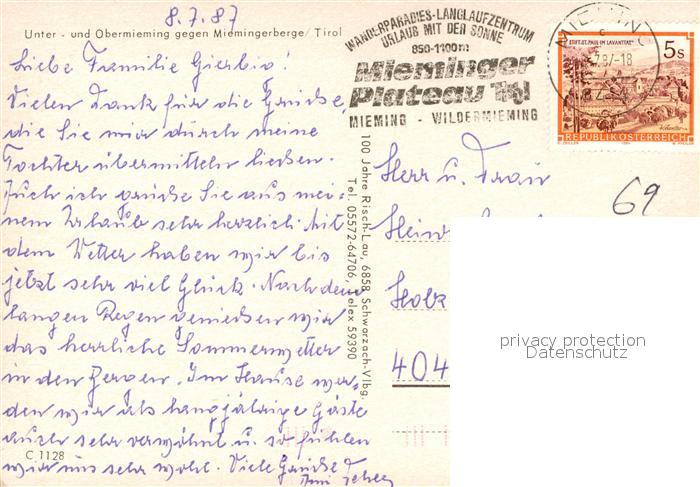 8.7.87
Unter - und Obermieming gegen Miemingerberge/ Tirol
Liebe Familie
Vielen Dank für die Grüße,
die Sie mir durch meine
Tochter übermitteln ließen.
Auch ich grüße Sie aus mei-
nem Urlaub sehr herzlich. Mit
dem Wetter haben wir bis
jetzt sehr viel Glück. Nach dem
langen Regen genießen wir
das herrliche Sommerwetter
in den Bergen. Im Hause wer-
den wir als langjährige Gäste
auch sehr verwöhnt u. so fühlen
wir uns sehr wohl. Viele Grüße
C 1128
100 Jahre Risch-Lau, 6858 Schwarzach-Vlbg.
Tel. 05572-64706, Telex 59390
WANDERPARADIES-LANGLAUFZENTRUM
URLAUB MIT DER SONNE
850-1100m
Mieminger
Plateau Tirol
MIEMING - WILDERMIEMING
MIEMING
STIFT ST. PAUL IM LAVANTTAL
5s
REPUBLIK ÖSTERREICH
Herr u. Frau
Holz
404
69
privacy protection
Datenschutz